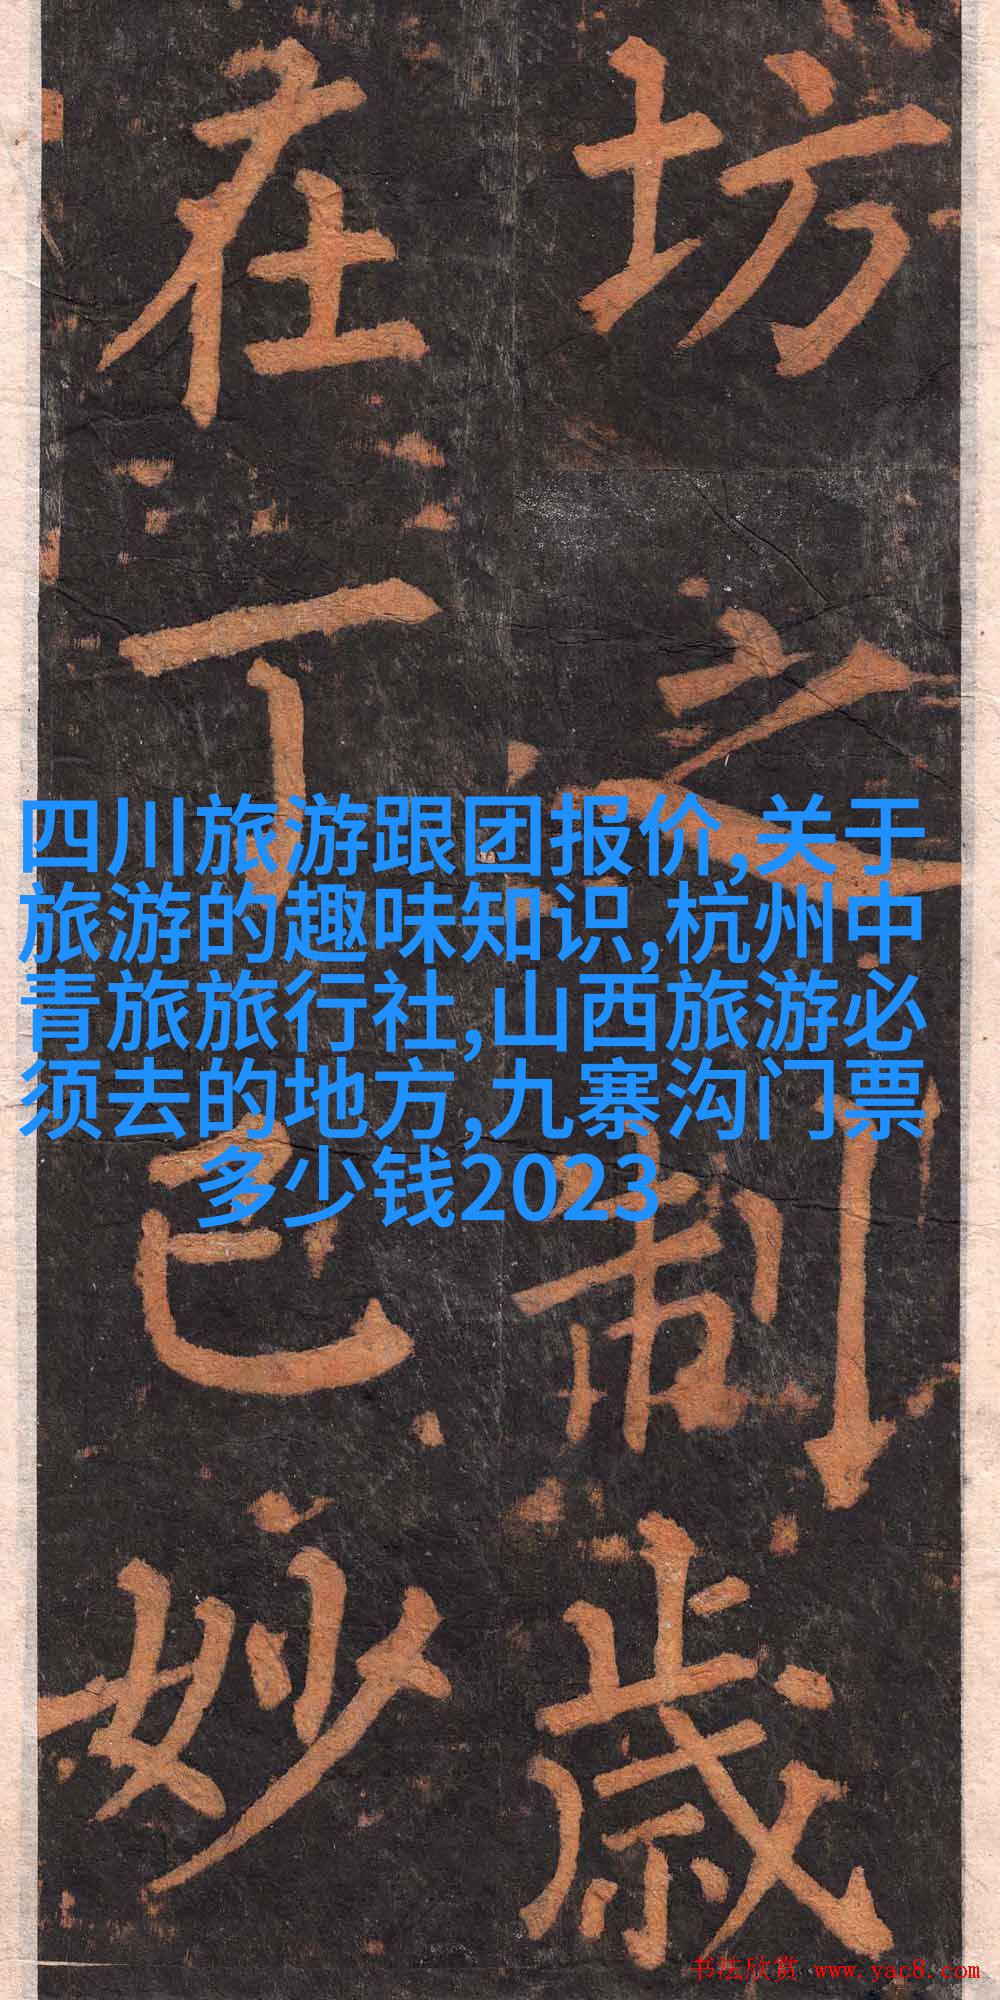 坊之制歲
在丁巳妙
四川旅游跟团报价,关于
旅游的趣味知识,杭州中
青旅旅行社,山西旅游必
须去的地方,九寨沟门票
多少钱2023
书法欣赏 www.yac8.com